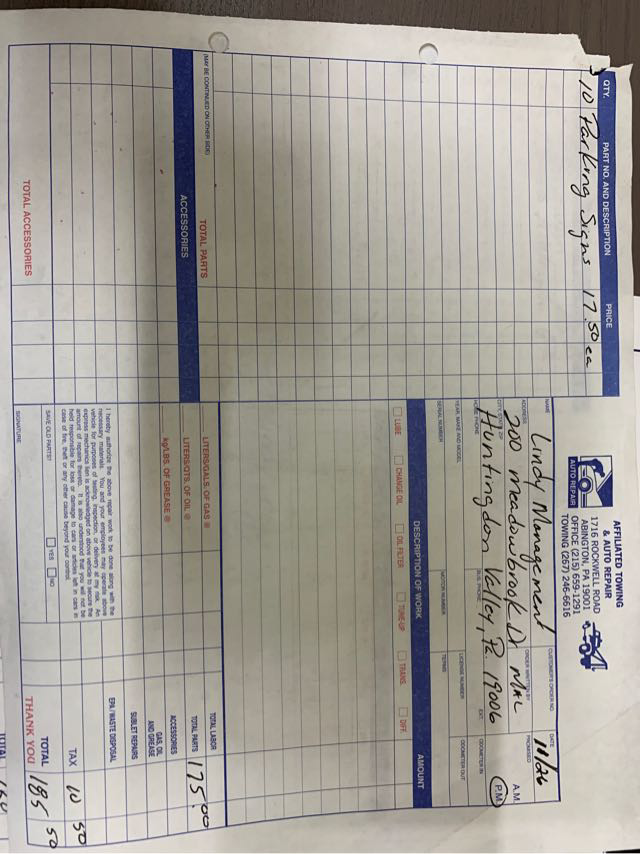 AFFILIATED TOWING
& AUTO REPAIR
1716 ROCKWELL ROAD
ABINGTON, PA 19001
OFFICE (215) 659-1291
TOWING (267) 246-6616
AUTO REPAIR
QTY. PART NO. AND DESCRIPTION PRICE
10 Parking Signs 17.50 ea
(MAY BE CONTINUED ON OTHER SIDE) TOTAL PARTS
ACCESSORIES
TOTAL ACCESSORIES
NAME CUSTOMER'S ORDER NO. DATE
Lindy Management 11/26
ADDRESS ORDER WRITTEN BY PROMISED A.M. P.M.
200 meadowbrook Dr
CITY, STATE, ZIP
Huntingdon Valley, Pa. 19006
HOME PHONE BUS. PHONE EXT. ODOMETER IN
YEAR, MAKE AND MODEL LICENSE NUMBER ODOMETER OUT
SERIAL NUMBER MOTOR NUMBER TERMS
DESCRIPTION OF WORK AMOUNT
LUBE CHANGE OIL OIL FILTER TUNE-UP TRANS. DIFF.
LITERS/GALS. OF GAS @
LITERS/QTS. OF OIL @
kg/LBS. OF GREASE @
TOTAL LABOR
TOTAL PARTS 175.00
ACCESSORIES
GAS, OIL
AND GREASE
SUBLET REPAIRS
EPA / WASTE DISPOSAL
TAX 10 50
TOTAL 185 50
THANK YOU
I hereby authorize the above repair work to be done along with the
necessary materials. You and your employees may operate above
vehicle for purposes of testing, inspection, or delivery at my risk. An
express mechanics lien is acknowledged on above vehicle to secure the
amount of repairs thereto. It is also understood that you will not be
held responsible for loss or damage to cars or articles left in cars in
case of fire, theft or any other cause beyond your control.
SAVE OLD PARTS? YES NO
SIGNATURE
TOTAL